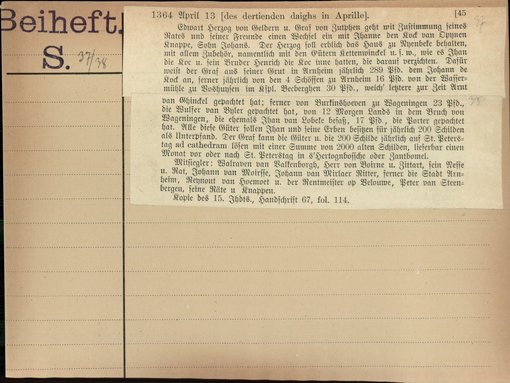 Beiheft.
S. 37/38
1364 April 13 [des dertienden daighs in Aprille]. [45
Edwart Herzog von Geldern u. Graf von Zutphen geht mit Zustimmung seines
Rates und seiner Freunde einen Wechsel ein mit Jhanne den Kock van Opynen
Knappe, Sohn Johans. Der Herzog soll erblich das Haus zu Nyenbeke behalten,
mit allem Zubehör, namentlich mit den Gütern Kettenwinckel u. s. w., wie es Jhan
die Koc u. sein Bruder Henrich die Koc inne hatten, die darauf verzichten. Dafür
weist der Graf aus seiner Grut in Arnheim jährlich 289 Pfd. dem Johann de
Kock an, ferner jährlich von den 4 Schöffen zu Arnheim 16 Pfd. von der Wasser-
mühle zu Voshuysen im Kspl. Beeberghen 30 Pfd., welch' letztere zur Zeit Arnt
van Ghinckel gepachtet hat; ferner von Burkinshoeven zu Wageningen 23 Pfd.,
die Wulfer van Byler gepachtet hat, von 12 Morgen Lands in dem Bruch von
Wageningen, die ehemals Jhan van Lobeke besaß, 17 Pfd., die Porter gepachtet
hat. Alle diese Güter sollen Jhan und seine Erben besitzen für jährlich 200 Schilden
als Unterpfand. Der Graf kann die Güter u. die 200 Schilde jährlich auf St. Peters-
tag ad cathedram lösen mit einer Summe von 2000 alten Schilden, lieferbar einen
Monat vor oder nach St. Peterstag in s'Hertognbossche oder Zautbomel.
Mitsiegler: Walraven van Valkenborgh, Herr von Borne u. Zittart, sein Neffe
u. Rat, Johann van Moirsse, Johann van Mirlaer Ritter, ferner die Stadt Arn-
heim, Reynout van Hoemoet u. der Rentmeister op Velouwe, Peter van Steen-
bergen, seine Räte u. Knappen.
Kopie des 15. Jhdts., Handschrift 67, fol. 114.